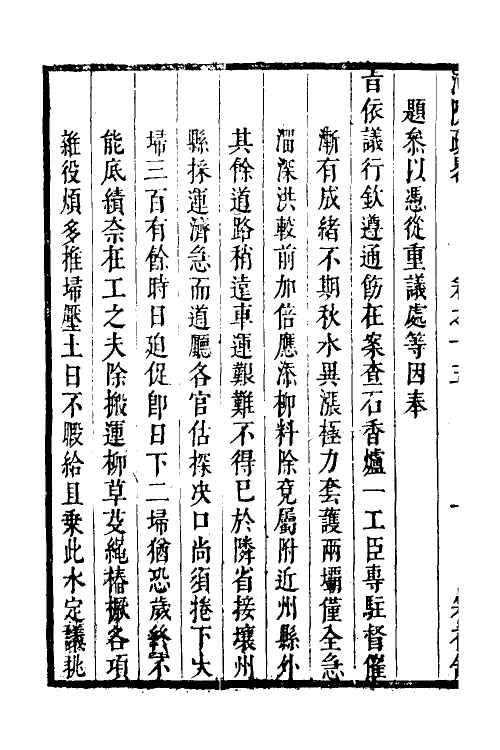 題參以憑從重議處等因奉
旨依議行欽遵通飭在案查石香爐一工臣專駐督催
漸有成緒不期秋水異漲極力套護兩壩僅全急
溜深洪較前加倍應添柳料除兗屬附近州縣外
其餘道路稍遠車運艱難不得已於隣省接壤州
縣採運濟急而道廳各官估探决口尚須捲下大
埽三百有餘時日廹促卽日下二埽猶恐歲終不
能底績奈在工之夫除搬運柳草芟繩樁橛各項
雜役煩多推埽壓土日不暇給且乘此水定議挑